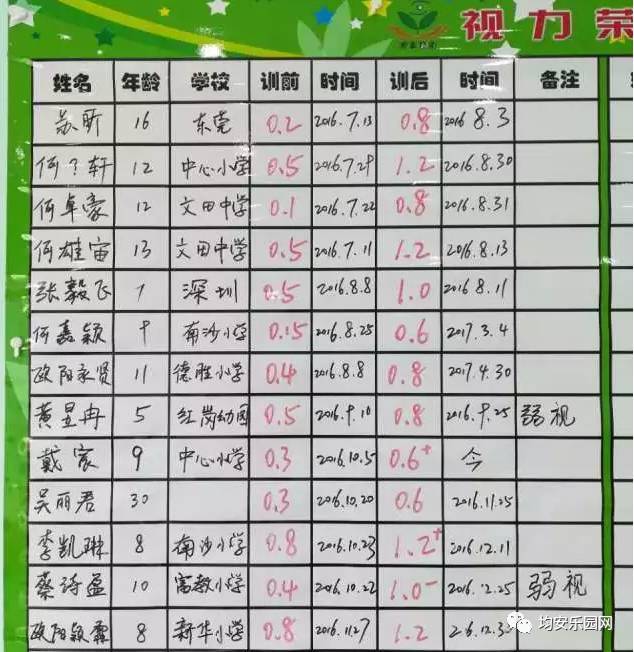 视力荣
姓名 年龄 学校 训前 时间 训后 时间 备注
苏昕 16 东莞 0.2 2016.7.13 0.8 2016 8.3
何?轩 12 中心小学 0.5 2016.7.29 1.2 2016.8.30
何卓豪 12 文田中学 0.1 2016.7.22 0.8 2016.8.31
何雄宙 13 文田中学 0.5 2016.7.11 1.2 2016.8.13
张毅飞 7 深圳 0.5 2016.8.8 1.0 2016.8.11
何嘉颖 9 南沙小学 0.15 2016.8.25 0.6 2017.3.4
欧阳家贤 11 德胜小学 0.4 2016.8.8 0.8 2017.4.30
黄昱冉 5 红岗幼园 0.5 2016.9.10 0.8 2016.9.25 弱视
戴 9 中心小学 0.3 2016.10.5 0.6+ 今
吴丽君 30 0.3 2016.10.20 0.6 2016.11.25
李凯琳 8 南沙小学 0.8 2016.10.23 1.2+ 2016.12.11
蔡诗盈 10 富教小学 0.4 2016.10.22 1.0- 2016.12.25 弱视
欧阳颖霖 8 新华小学 0.8 2016.11.27 1.2
均安乐园网